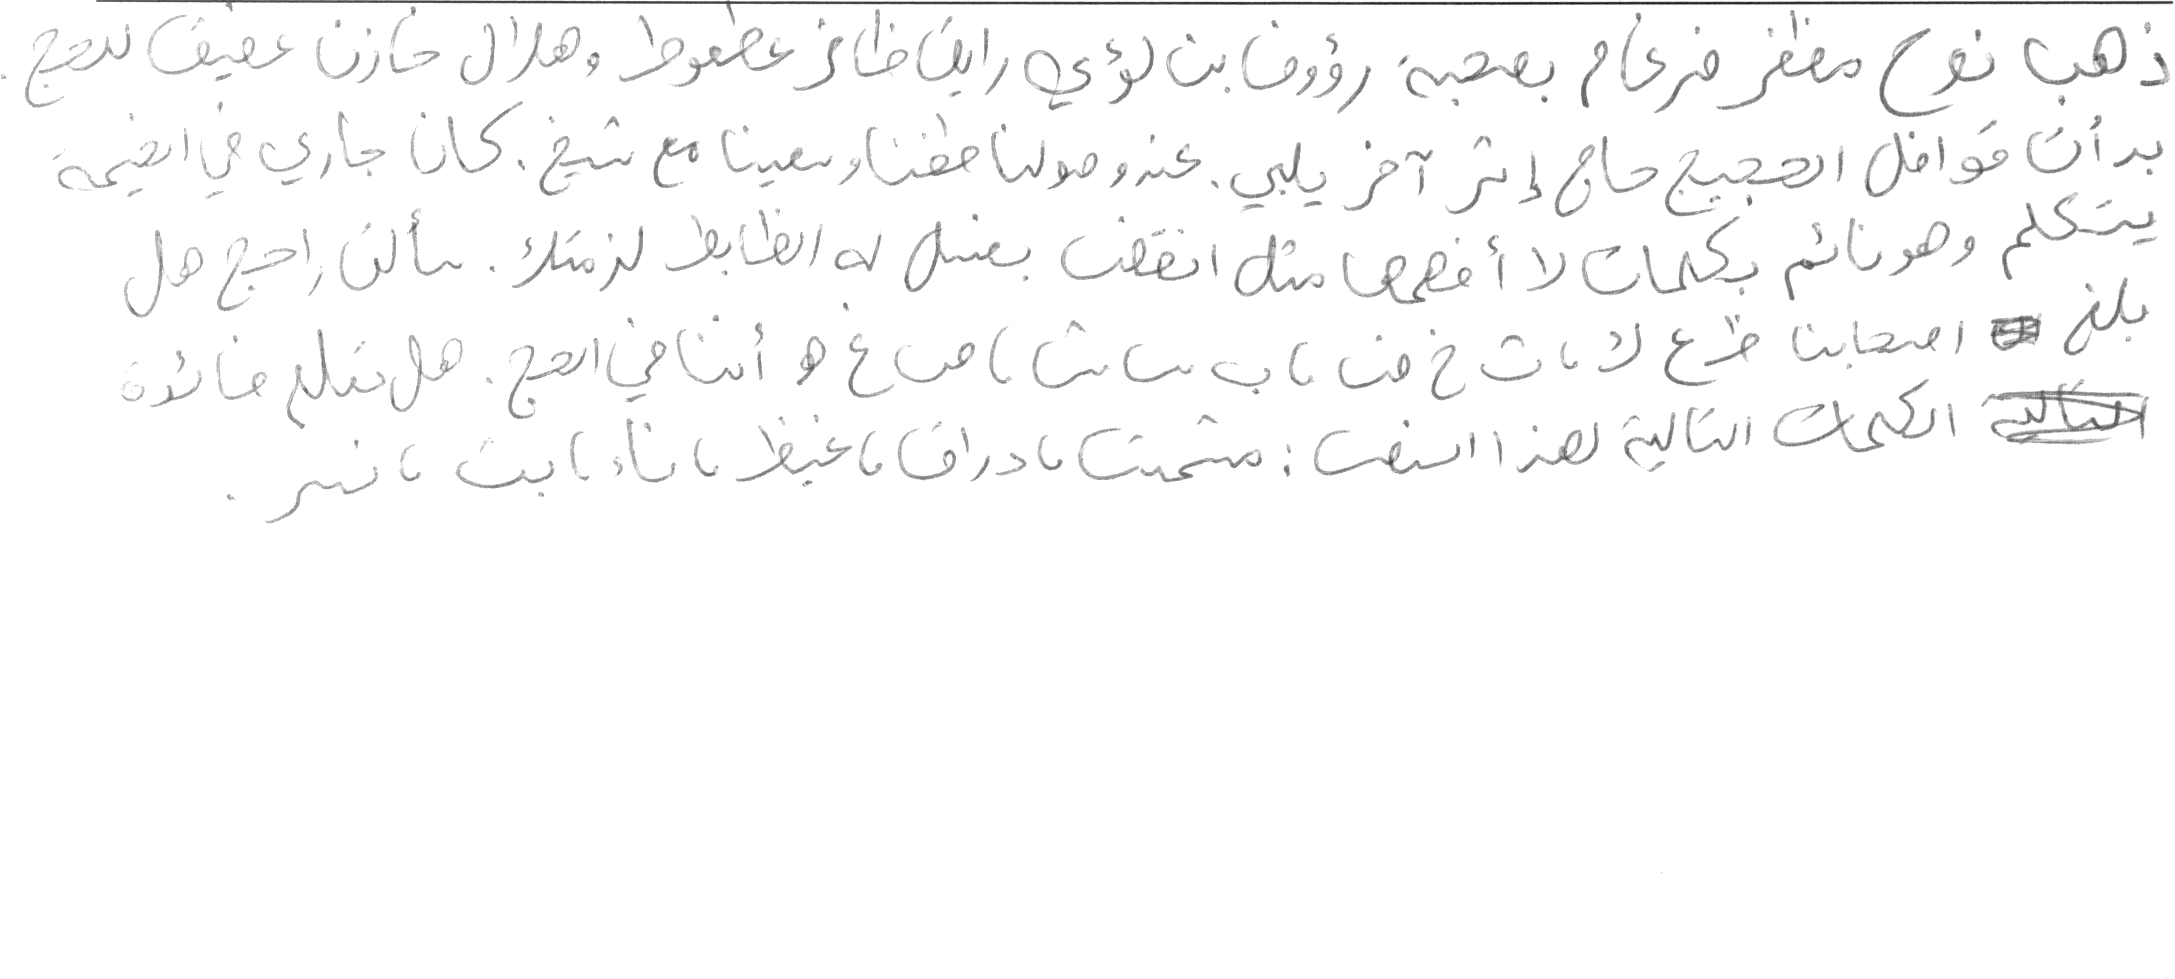 ذهب نوح مظفر ضرغام بصحبة رؤوف بن لؤي رايق ظافر عطعوط وهلال خازن عفيف للحج .
بدأت قوافل الحجيج حاج إثر آخر يلبي . عند وصولنا طفنا وسعينا مع شيخ . كان جاري في الخيمة
يتكلم وهو نائم بكلمات لا أفهمها مثل انقضت بغسل له الظابط لزمتك . سألت راجح هل
بلغ اصحابنا ط ع لا ، ث خ ض ، ب س ش ، ص غ ه أننا في الحج . هل تعلم فائدة
الكلمات التالية لهذا النص : مشمش ، دراق ، غيظ ، ناء ، بت ، نسر .